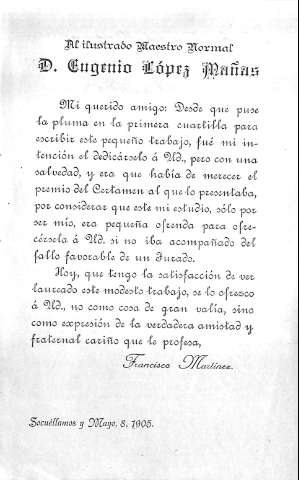 Al ilustrado Maestro Normal
D. Eugenio López Mañas
Mi querido amigo: Desde que puse
la pluma en la primera cuartilla para
escribir este pequeño trabajo, fué mi in-
tención el dedicárselo á Ud., pero con una
salvedad, y era que había de merecer el
premio del Certamen al que lo presentaba,
por considerar que este mi estudio, sólo por
ser mío, era pequeña ofrenda para ofre-
cérsela á Ud. si no iba acompañado del
fallo favorable de un Jurado.
Hoy, que tengo la satisfacción de ver
laureado este modesto trabajo, se lo ofrezco
á Ud., no como cosa de gran valía, sino
como expresión de la verdadera amistad y
fraternal cariño que le profesa,
Francisco Martínez.
Socuéllamos y Mayo, 8, 1905.